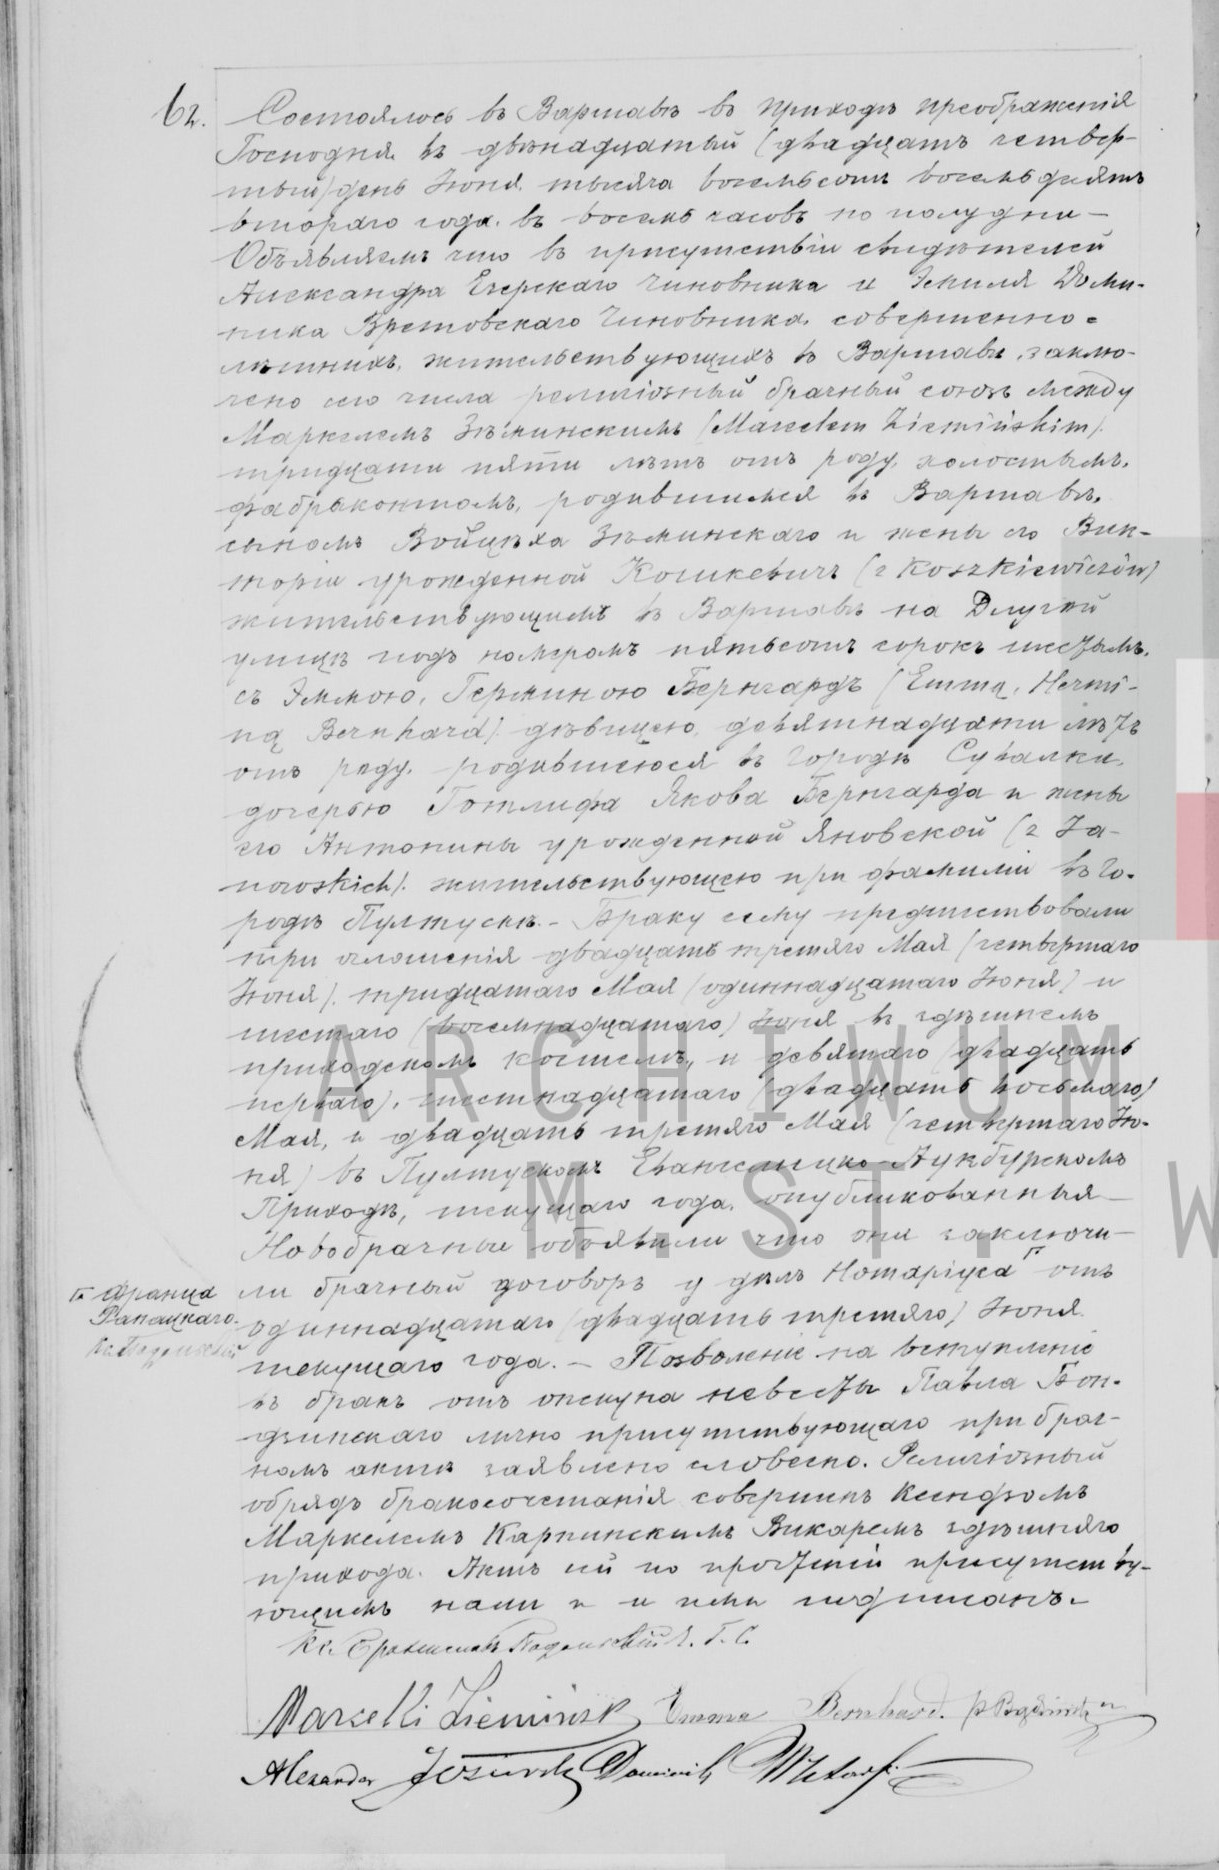 62. Состоялось въ Варшавѣ въ приходѣ преображенія
Господня въ двѣнадцатый (двадцать четвер-
тый) день Іюня тысяча восемьсотъ восемьдесятъ
втораго года въ восемь часовъ по полудни –
Объявляемъ что въ присутствіи свидѣтелей
Александра Езерскаго чиновника и Эмиля Доми-
ника чиновника, совершенно-
лѣтнихъ, жительствующихъ въ Варшавѣ, заклю-
чено сего числа религіозный брачный союзъ между
Маркелемъ Зѣминскимъ (Marcelem Ziemińskim)
тридцати пяти лѣтъ отъ роду, холостымъ,
фабрикантомъ, родившимся въ Варшавѣ,
сыномъ Войцѣха Зѣминскаго и жены его Вик-
торіи урожденной Кошкевичъ (z Koszkiewiczów)
жительствующимъ въ Варшавѣ на Длугой
улицѣ подъ номеромъ пятьсотъ сорокъ шестымъ,
съ Эммою, Герминою Бернгардъ (Emmą, Hermi-
ną Bernhard) дѣвицею, девятнадцати лѣтъ
отъ роду, родившеюся въ городѣ Сувалки,
дочерью Готлифа Якова Бернгарда и жены
его Антонины урожденной Яновской (z Ja-
nowskich) жительствующею при фамиліи въ го-
родѣ Пултускѣ. – Браку сему предшествовали
три оглашенія двадцать третяго Мая (четвертаго
Іюня), тридцатаго Мая (одиннадцатаго Іюня) и
шестаго (восемнадцатаго) Іюня въ здѣшнемъ
приходскомъ костелѣ, и девятаго (двадцать
перваго), шестнадцатаго (двадцать восьмаго)
Мая, и двадцать третяго Мая (четвертаго Ію-
ня) въ Пултускомъ Евангелицко-Аугсбурскомъ
Приходѣ, текущаго года опубликованныя –
Новобрачные объявили что они заключи-
ли брачный договоръ у дѣлъ Нотаріуса ꙾ отъ
꙾ Франца
Рапацкаго.
одиннадцатаго (двадцать третяго) Іюня
текущаго года. – Позволеніе на вступленіе
въ бракъ отъ опекуна невесты Павла Бон-
дзинскаго лично присутствующаго при брач-
номъ актѣ заявлено словесно. Религіозный
обрядъ бракосочетанія совершенъ Ксендзомъ
Маркелемъ Карпинскимъ Викаремъ здѣшняго
прихода. Актъ сей по прочтеніи присутству-
ющимъ нами и ими подписанъ.
Marcelli Ziemiński Emma Bernhard.
Alexander Dominik
ARCHIWUM
M. ST. W